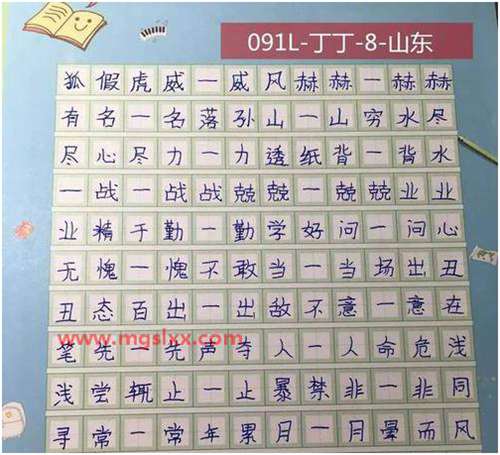 091L-丁丁-8-山东
狐假虎威一威风赫赫一赫赫
有名一名落孙山一山穷水尽
尽心尽力一力透纸背一背水
一战一战战兢兢一兢兢业业
业精于勤一勤学好问一问心
无愧一愧不敢当一当场出丑
丑态百出一出敌不意一意在
笔先一先声夺人一人命危浅
www.mgslxx.com
浅尝辄止一止暴禁非一非同
寻常一常年累月一月晕而风